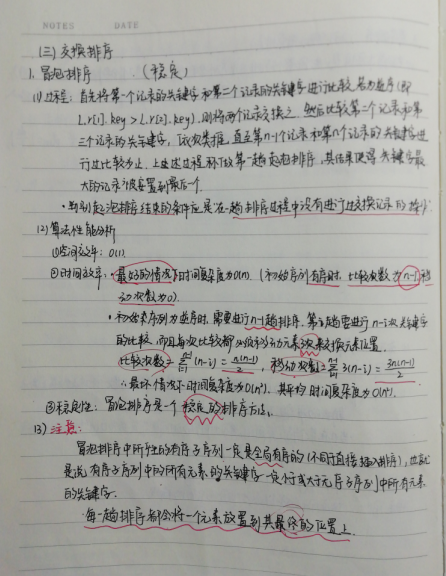 NOTES DATE
(三)交换排序
1. 冒泡排序 (稳定)
(1)过程: 首先将第一个记录的关键字和第二个记录的关键字进行比较, 若为逆序(即
L.r[1].key > L.r[2].key), 则将两个记录交换之, 然后比较第二个记录和第
三个记录的关键字, 依次类推, 直至第n-1个记录和第n个记录的关键字进
行过比较为止. 上述过程称作第一趟起泡排序, 其结果使得关键字最
大的记录被安置到最后一个.
·判别起泡排序结束的条件应是“在一趟排序过程中没有进行过交换记录的操作”
(2)算法性能分析
①空间效率: O(1).
②时间效率: ·最好的情况下时间复杂度为O(n). (初始序列有序时, 比较次数为n-1, 移
动次数为0).
·初始序列为逆序时, 需要进行n-1趟排序, 第i趟要进行n-i次关键字
的比较, 而且每次比较都必须移动元素3次来交换元素位置.
比较次数=∑(n-i)=n(n-1)/2, 移动次数=∑3(n-i)=3n(n-1)/2
∴最坏情况下时间复杂度为O(n²), 其平均时间复杂度为O(n²).
③稳定性: 冒泡排序是一个稳定的排序方法.
(3)注意:
冒泡排序中所产生的有序子序列一定是全局有序的(不同于直接插入排序), 也就
是说有序子序列中的所有元素的关键字一定小于或大于无序子序列中所有元素
的关键字.
·每一趟排序都会将一个元素放置到其最终的位置上.